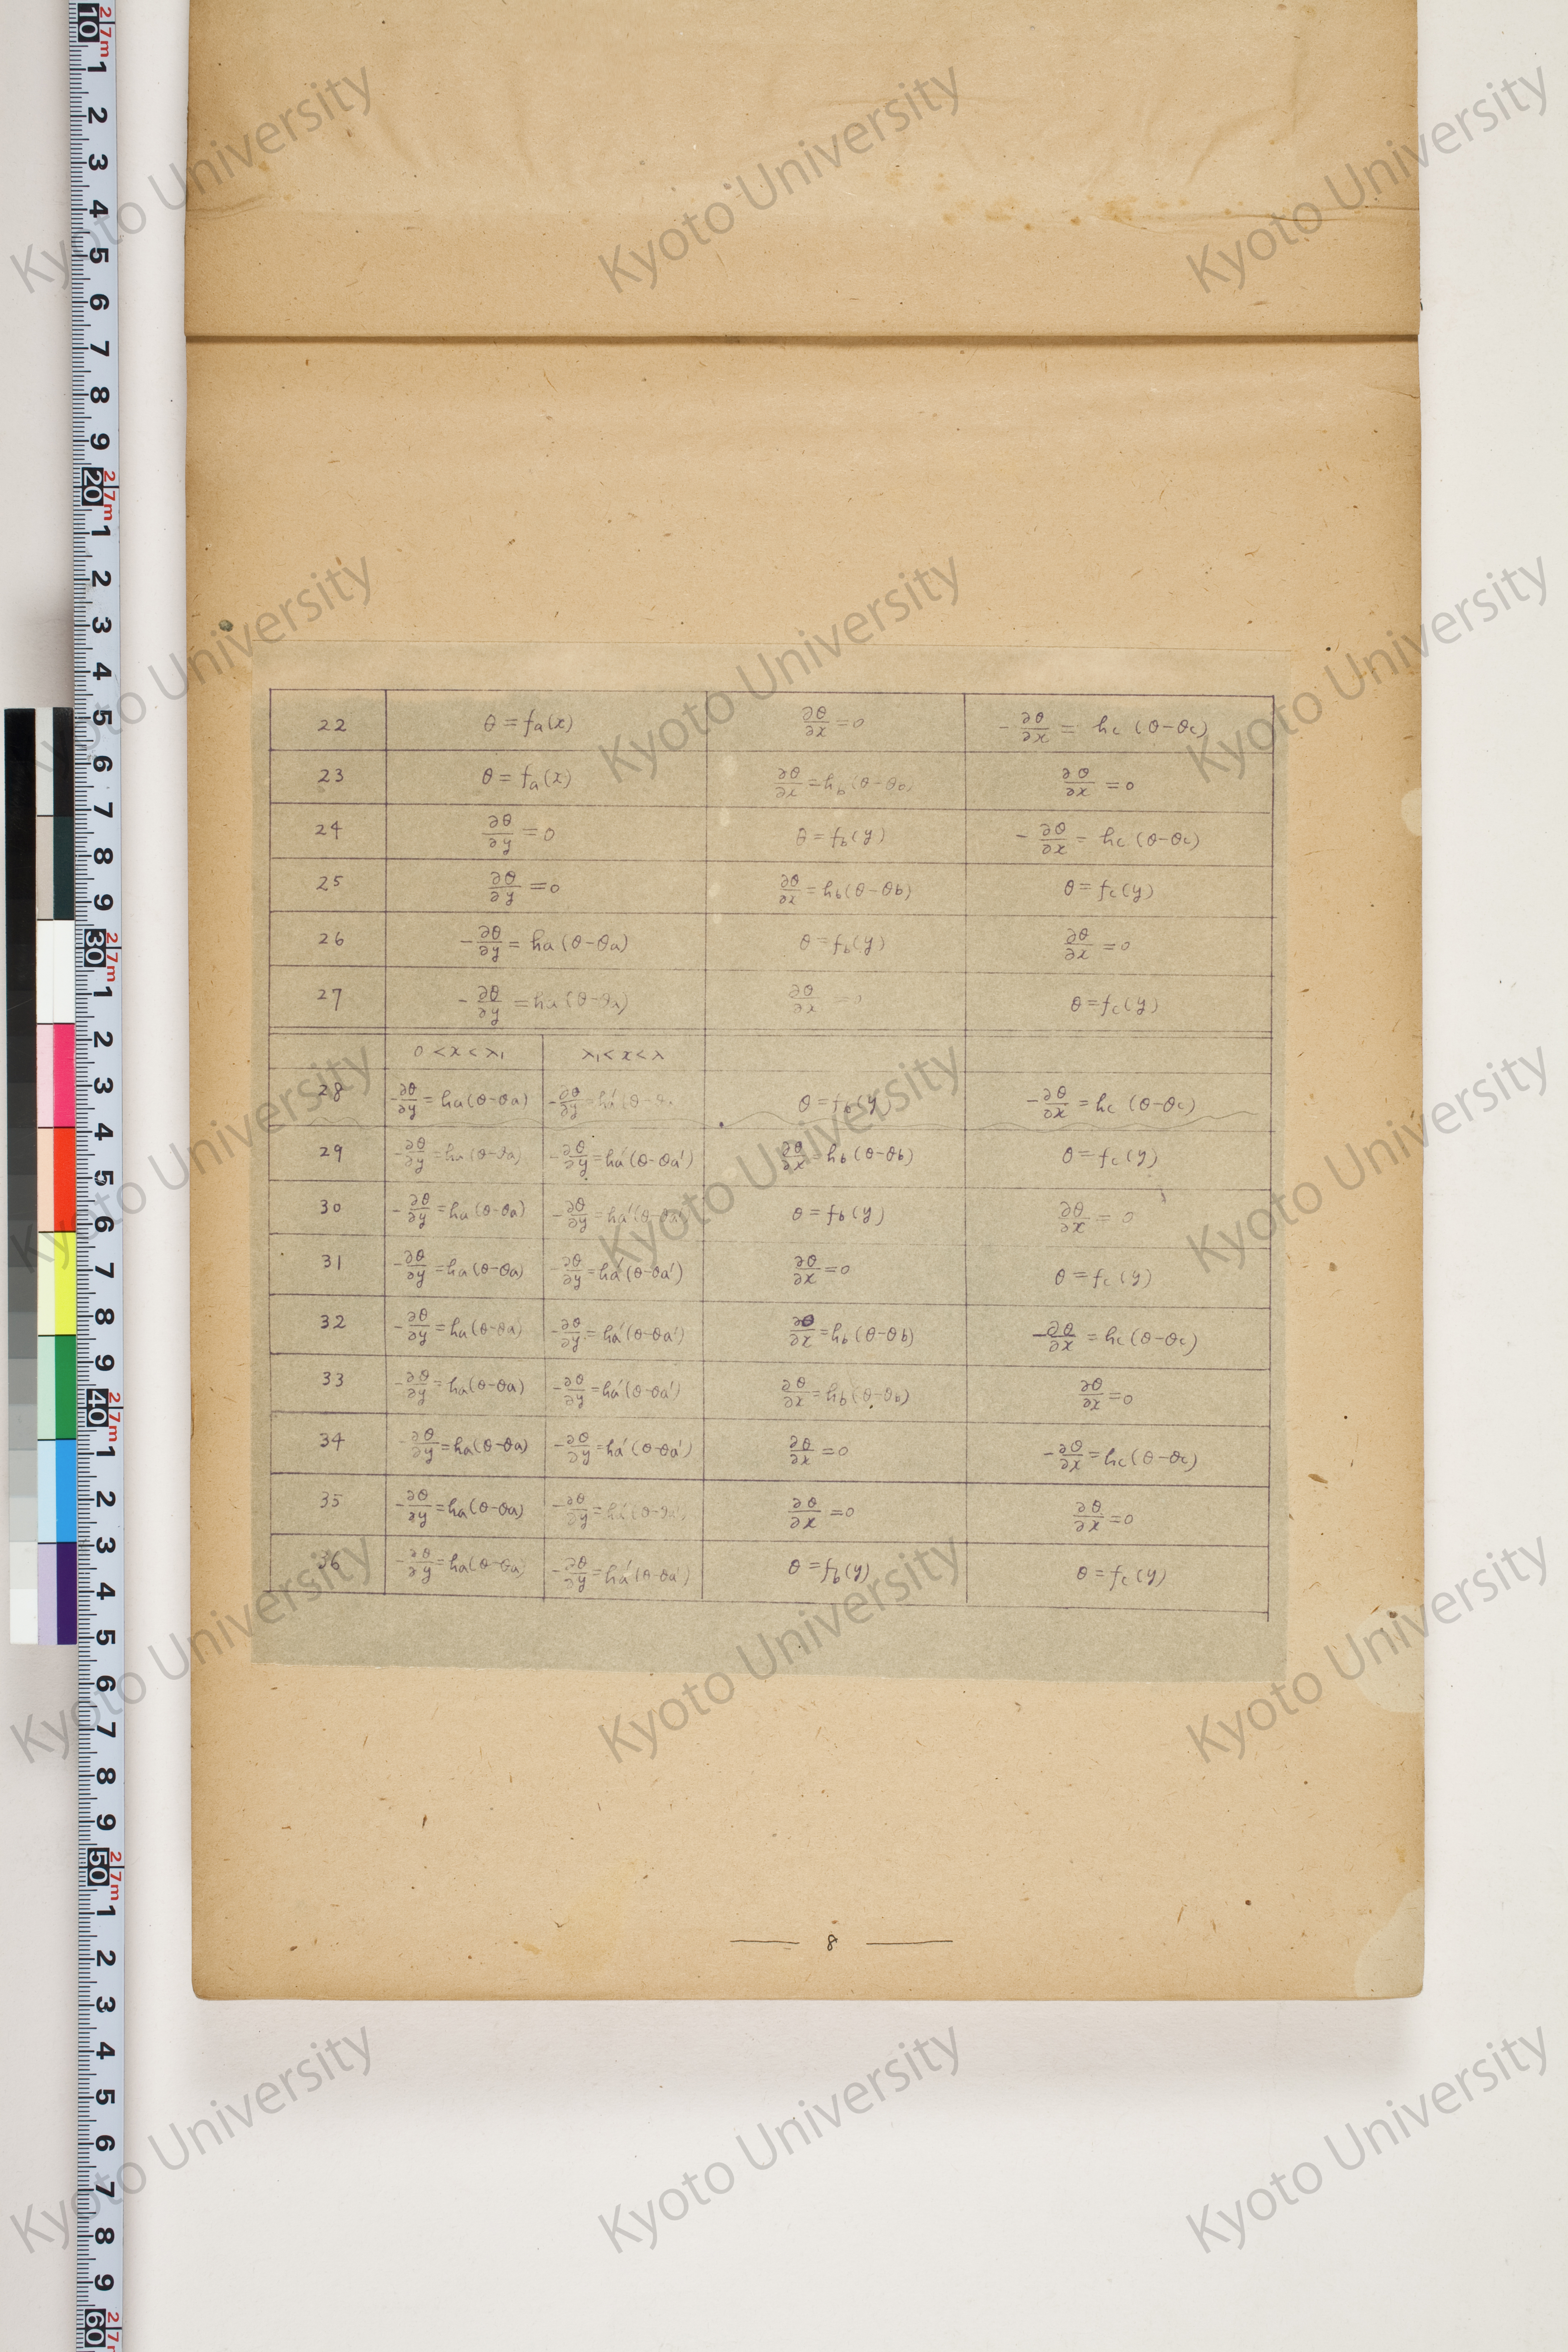 22 θ = fa(x) ∂θ/∂x = 0 -∂θ/∂x = hc (θ-θc)
23 θ = fa(x) ∂θ/∂x = hb (θ-θb) ∂θ/∂x = 0
24 ∂θ/∂y = 0 θ = fb(y) -∂θ/∂x = hc (θ-θc)
25 ∂θ/∂y = 0 ∂θ/∂x = hb(θ-θb) θ = fc(y)
26 -∂θ/∂y = ha(θ-θa) θ = fb(y) ∂θ/∂x = 0
27 -∂θ/∂y = ha(θ-θa) ∂θ/∂x = 0 θ = fc(y)
0 < x < λ₁ λ₁ < x < λ
28 -∂θ/∂y = ha(θ-θa) -∂θ/∂y = ha'(θ- θ = fb(y) -∂θ/∂x = hc (θ-θc)
29 -∂θ/∂y = ha(θ-θa) -∂θ/∂y = ha'(θ-θa') ∂θ/∂x = hb(θ-θb) θ = fc(y)
30 -∂θ/∂y = ha(θ-θa) -∂θ/∂y = ha'(θ-θa') θ = fb(y) ∂θ/∂x = 0
31 -∂θ/∂y = ha(θ-θa) -∂θ/∂y = ha'(θ-θa') ∂θ/∂x = 0 θ = fc(y)
32 -∂θ/∂y = ha(θ-θa) -∂θ/∂y = ha'(θ-θa') ∂θ/∂x = hb(θ-θb) -∂θ/∂x = hc(θ-θc)
33 -∂θ/∂y = ha(θ-θa) -∂θ/∂y = ha'(θ-θa') ∂θ/∂x = hb(θ-θb) ∂θ/∂x = 0
34 -∂θ/∂y = ha(θ-θa) -∂θ/∂y = ha'(θ-θa') ∂θ/∂x = 0 -∂θ/∂x = hc(θ-θc)
35 -∂θ/∂y = ha(θ-θa) -∂θ/∂y = ha'(θ-θa') ∂θ/∂x = 0 ∂θ/∂x = 0
36 -∂θ/∂y = ha(θ-θa) -∂θ/∂y = ha'(θ-θa') θ = fb(y) θ = fc(y)
8